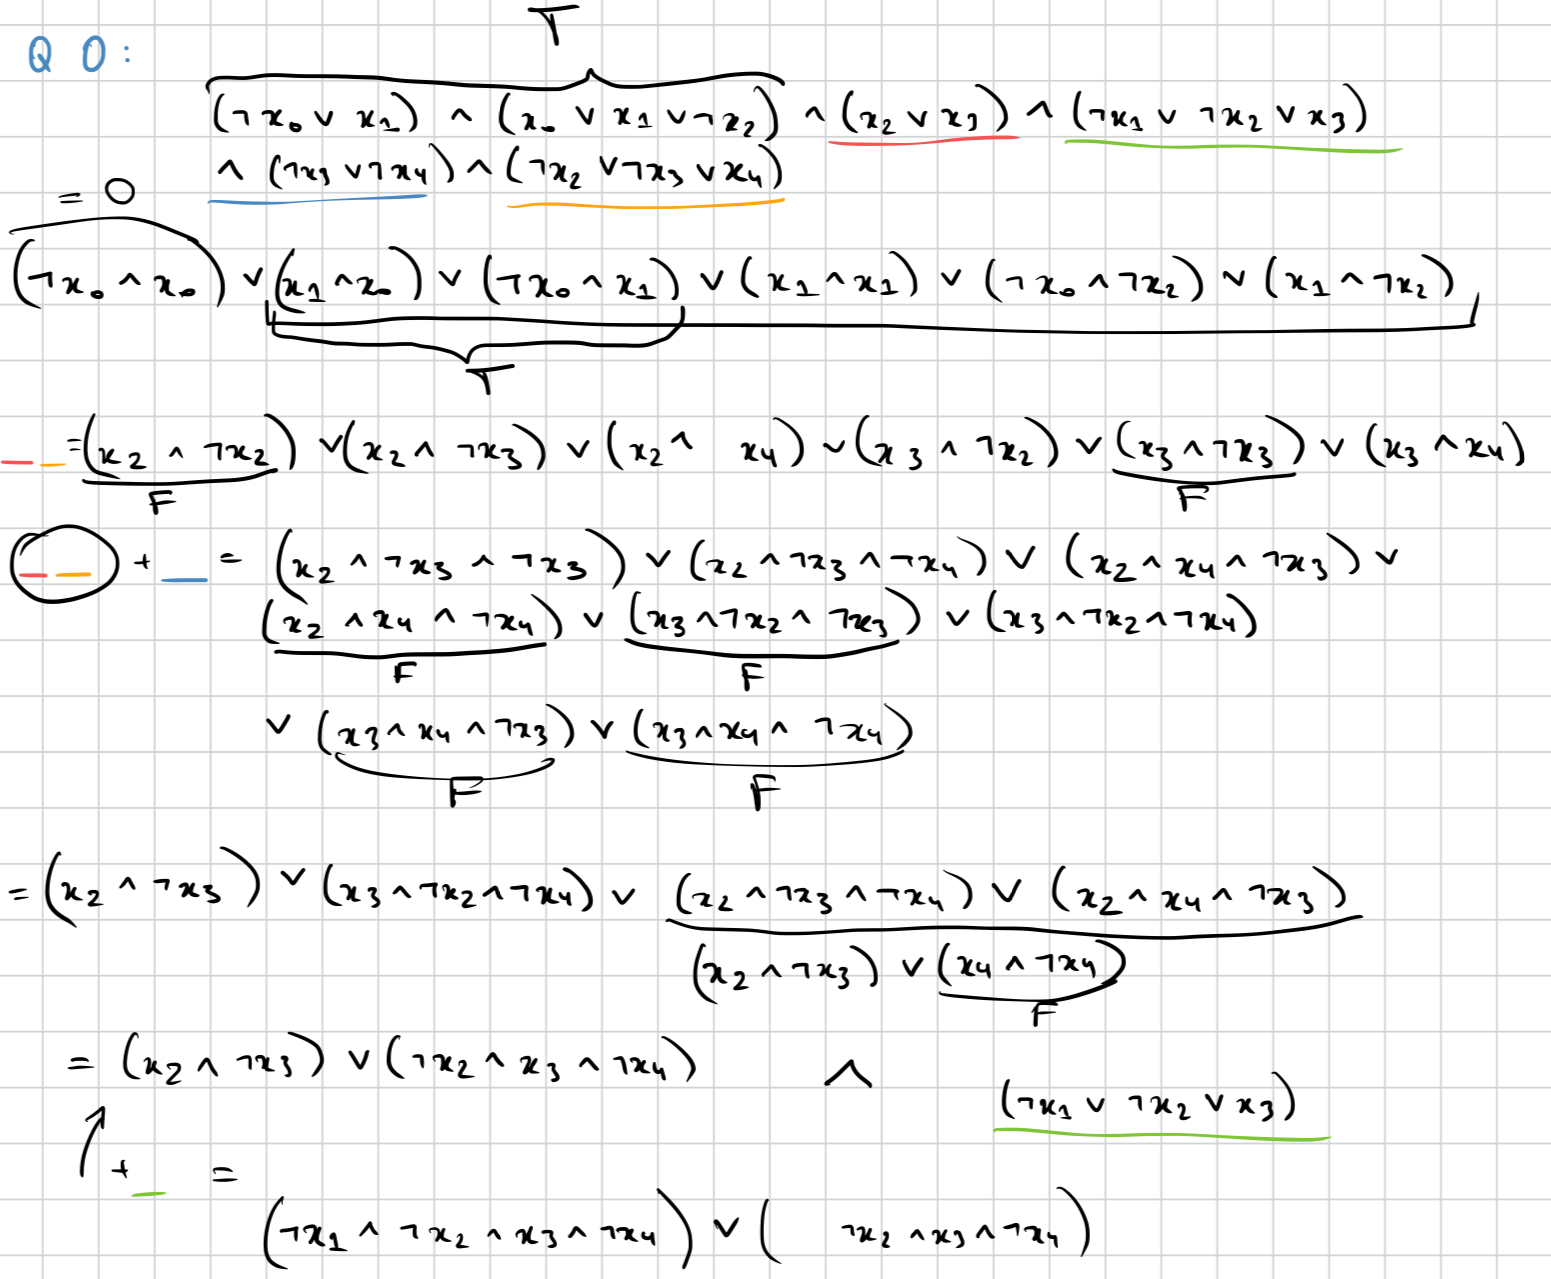 T
Q 0:
(¬x₀ ∨ x₁) ∧ (x₀ ∨ x₁ ∨ ¬x₂) ∧ (x₂ ∨ x₃) ∧ (¬x₁ ∨ ¬x₂ ∨ x₃)
∧ (¬x₃ ∨ ¬x₄) ∧ (¬x₂ ∨ ¬x₃ ∨ x₄)
= 0
(¬x₀ ∧ x₀) ∨ (x₁ ∧ x₀) ∨ (¬x₀ ∧ x₁) ∨ (x₁ ∧ x₁) ∨ (¬x₀ ∧ ¬x₂) ∨ (x₁ ∧ ¬x₂)
T
= (x₂ ∧ ¬x₂) ∨ (x₂ ∧ ¬x₃) ∨ (x₂ ∧ x₄) ∨ (x₃ ∧ ¬x₂) ∨ (x₃ ∧ ¬x₃) ∨ (x₃ ∧ x₄)
F F
+ = (x₂ ∧ ¬x₃ ∧ ¬x₃) ∨ (x₂ ∧ ¬x₃ ∧ ¬x₄) ∨ (x₂ ∧ x₄ ∧ ¬x₃) ∨
(x₂ ∧ x₄ ∧ ¬x₄) ∨ (x₃ ∧ ¬x₂ ∧ ¬x₃) ∨ (x₃ ∧ ¬x₂ ∧ ¬x₄)
F F
∨ (x₃ ∧ x₄ ∧ ¬x₃) ∨ (x₃ ∧ x₄ ∧ ¬x₄)
F F
= (x₂ ∧ ¬x₃) ∨ (x₃ ∧ ¬x₂ ∧ ¬x₄) ∨ (x₂ ∧ ¬x₃ ∧ ¬x₄) ∨ (x₂ ∧ x₄ ∧ ¬x₃)
(x₂ ∧ ¬x₃) ∨ (x₄ ∧ ¬x₄)
F
= (x₂ ∧ ¬x₃) ∨ (¬x₂ ∧ x₃ ∧ ¬x₄) ∧
(¬x₁ ∨ ¬x₂ ∨ x₃)
+ =
(¬x₁ ∧ ¬x₂ ∧ x₃ ∧ ¬x₄) ∨ ( ¬x₂ ∧ x₃ ∧ ¬x₄)